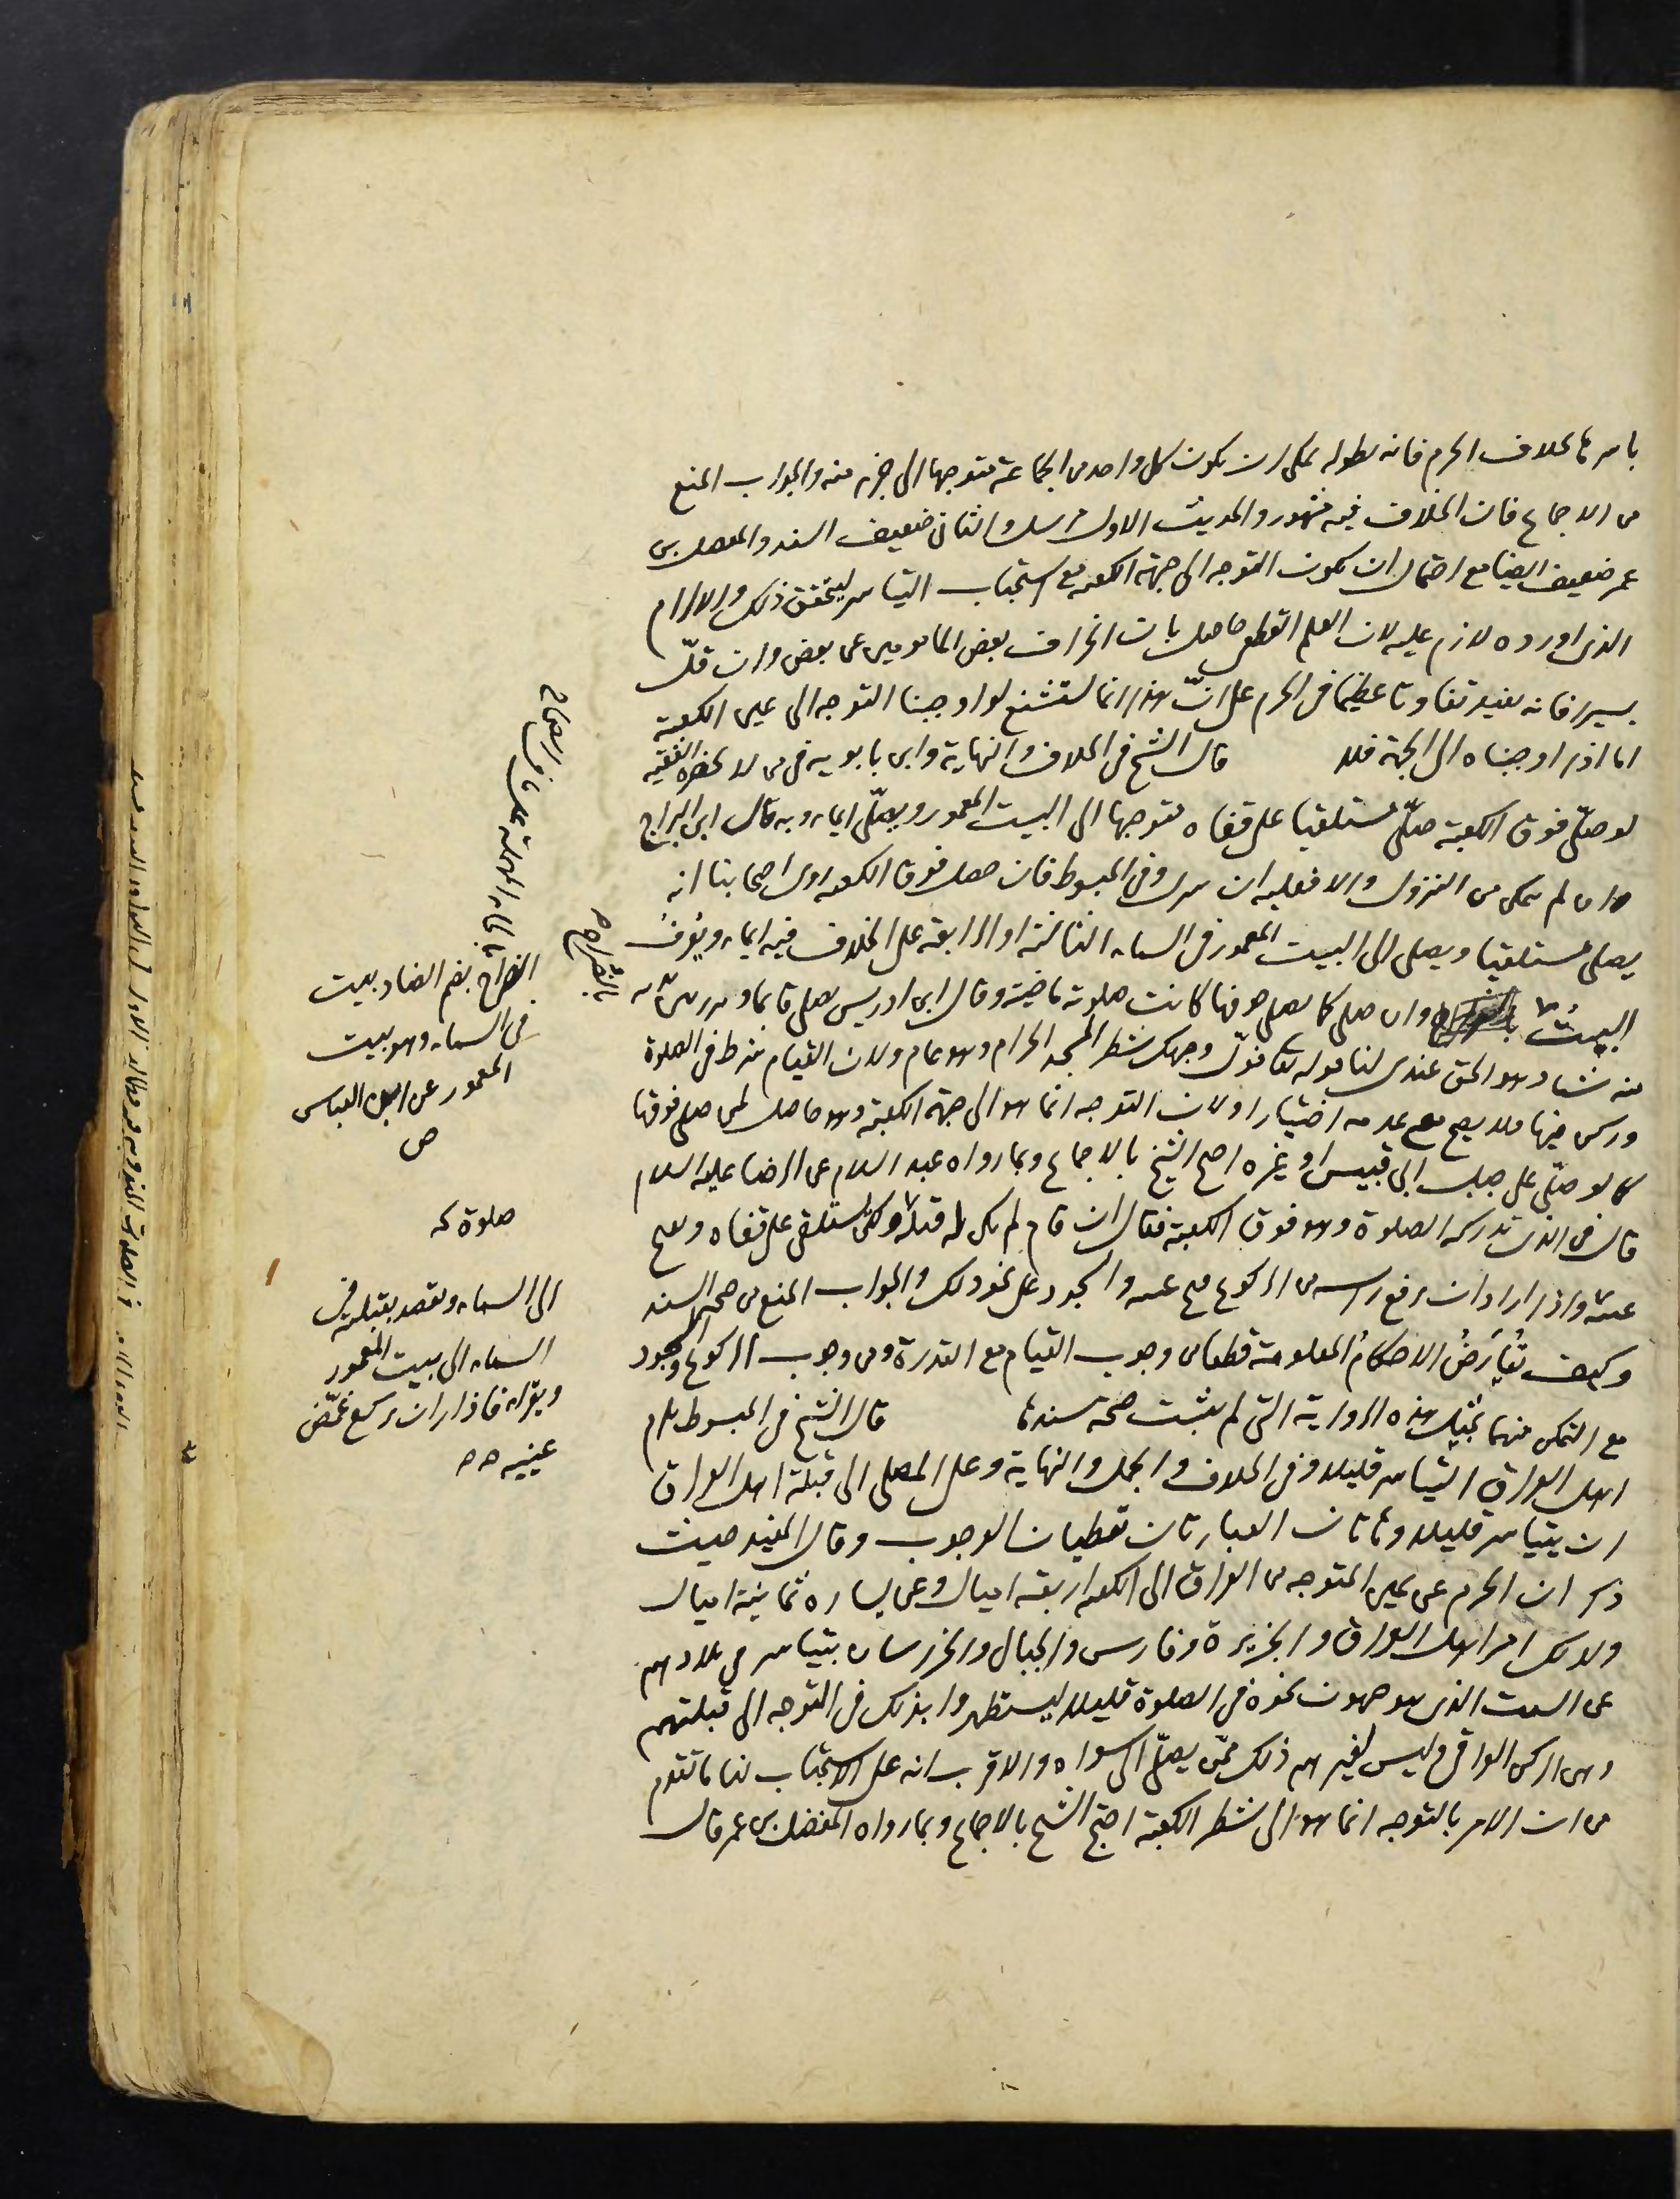 باسرها بخلاف الحرم فانه لطوله يمكن ان يكون كل واحد من الجماعة متوجها الى جزء منه والجواب المنع
من الاجماع فان الخلاف فيه مشهور والحديث الاول مرسل والثاني ضعيف السند والمفضل بن
عمر ضعيف ايضا مع احتمال ان يكون التوجه الى جهة الكعبه مع استحباب التياسر ليتحقق ذلك والالزام
الذي اورده لازم عليه لان العلم القطعي حاصل بان انحراف بعض المامومين عن بعض وان قلّ
يسيرا فانه يفيد تفاوتا عظيما في الحرم على انّ هذا انما يستشنع لو اوجبنا التوجه الى عين الكعبة
اما اذا اوجبناه الى الجهة فلا قال الشيخ في الخلاف والنهاية وابن بابويه في من لا يحضره الفقيه
لو صلّى فوق الكعبة صلّى مستلقيا على قفاه متوجها الى البيت المعمور ويصلّي ايماء وبه قال ابن البراج
وان لم يتمكن من النزول والا فعليه ان ينزل وفي المبسوط فان صلى فوق الكعبه روى اصحابنا انه
يصلي مستلقيا ويصلي الى البيت المعمور في السماء الثالثة او الرابعة على الخلاف فيه ايماء ويُعرف
البيتُ بالضراح وان صلى كما يصلي جوفها كانت صلوته ماضية وقال ابن ادريس يصلي قائما
منه شيئا وهو الحق عندي لنا قوله تعا فولّ وجهك شطر المسجد الحرام وهو عام ولان القيام شرط في الصلوة
وركن فيها فلا يصح مع عدمه اختيارا ولان التوجه انما هو الى جهة الكعبة وهو حاصل لمن صلى فوقها
كما لو صلّى على جبل ابي قبيس او غيره احتج الشيخ بالاجماع وبما رواه عبد السلام عن الرضا عليه السلام
قال في الذي تدركه الصلوة وهو فوق الكعبة فقال ان قام لم يكن له قبلة ولكن يستلقي على قفاه ويفتح
عينيه واذا اراد ان يرفع راسه من الركوع فتح عينيه والسجود على نحو ذلك والجواب المنع من صحة السند
وكيف تُعارَضُ الاحكامُ المعلومة قطعا من وجوب القيام مع القدرة ومن وجوب الركوع والسجود
مع التمكن منهما بمثل هذه الرواية التي لم يثبت صحة سندها قال الشيخ في المبسوط يلزم
اهل العراق التياسر قليلا وفي الخلاف والجمل والنهاية وعلى المصلي الى قبلة اهل العراق
ان يتياسر قليلا وهاتان العبارتان تعطيان الوجوب وقال المفيد حيث
ذكر ان الحرم عن يمين المتوجه من العراق الى الكعبه اربعة اميال وعن يساره ثمانية اميال
ولذلك امر اهل العراق والجزيرة وفارس والجبال وخراسان بتياسر في بلادهم
عن السمت الذي يتوجهون نحوه في الصلوة قليلا ليستظهروا بذلك في التوجه الى قبلتهم
وهي الركن العراقي وليس لغيرهم ذلك ممّن يصلّي الى سواه والاقرب انه على الاستحباب لنا ما تقدم
من ان الامر بالتوجه انما هو الى شطر الكعبة احتج الشيخ بالاجماع وبما رواه المفضل بن عمر قال
بالحاء المهملة كما في الصحاح
بالضراح
الضراح بضم الضاد بيت
في السماء وهو بيت
المعمور عن ابن العباس
ص
صلوة كه
الى السماء ويقصد بقبلته في
السماء الى بيت المعمور
ويقرا فاذا اراد ان يركع غمّض
عينيه